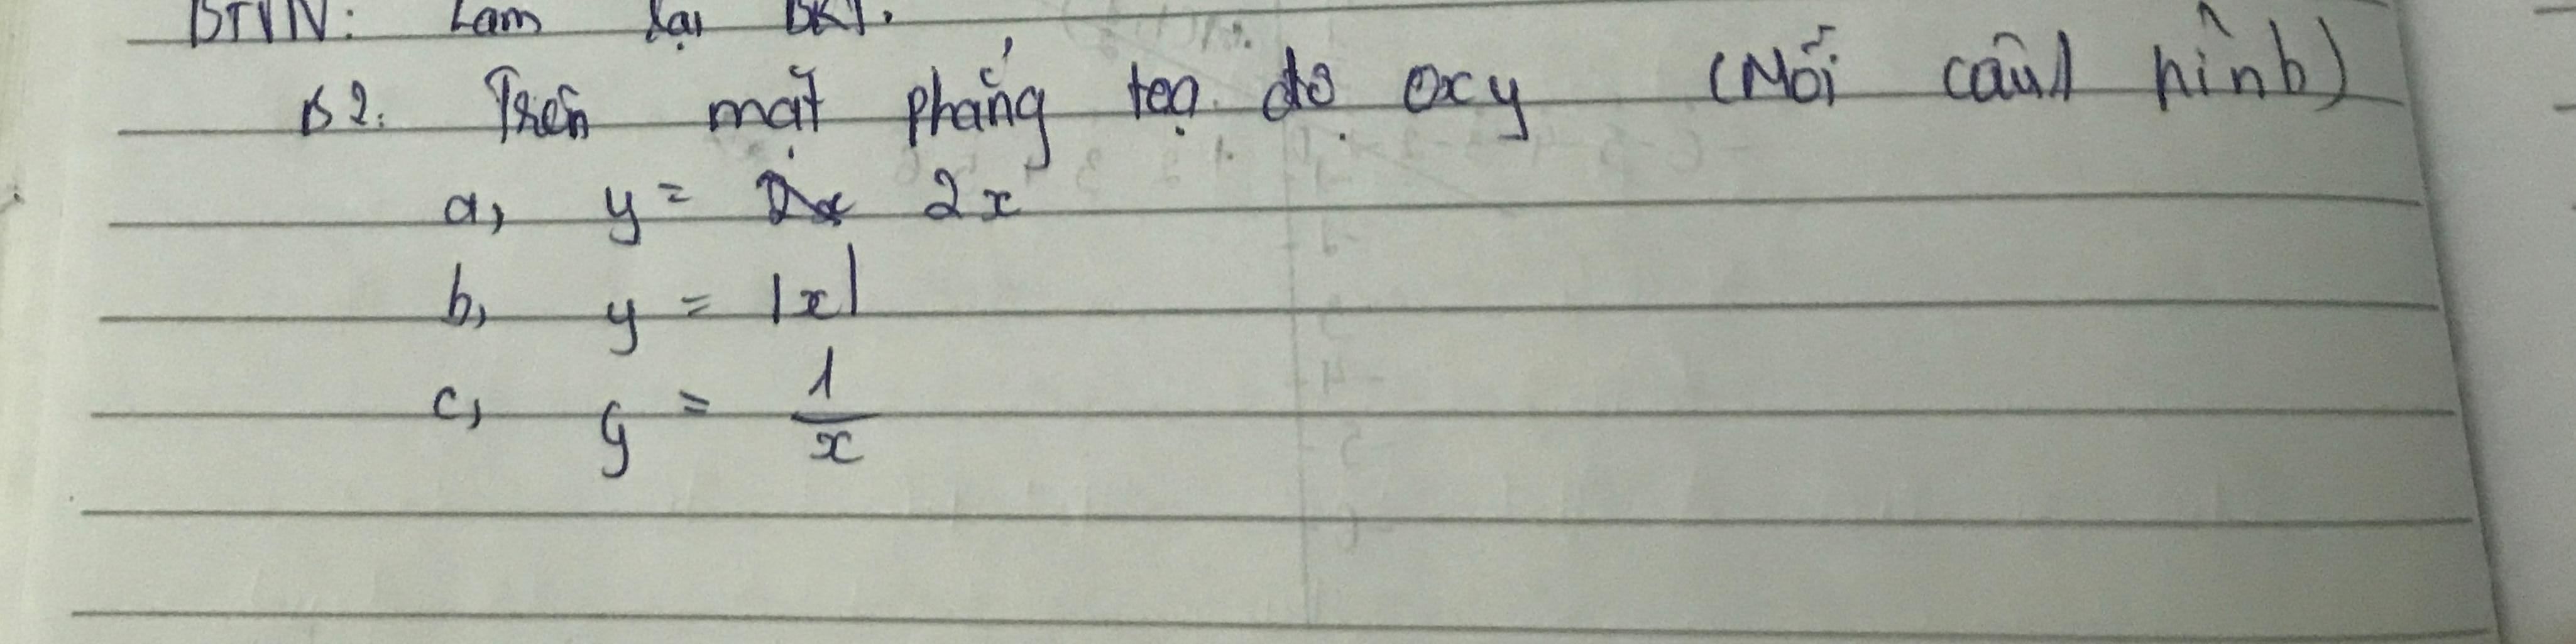 BTVN: Làm lại BKT.
B2: Trên mặt phẳng tọa độ Oxy (Mỗi câu 1 hình)
a, y = 2x
b, y = |x|
c, y = \frac{1}{x}